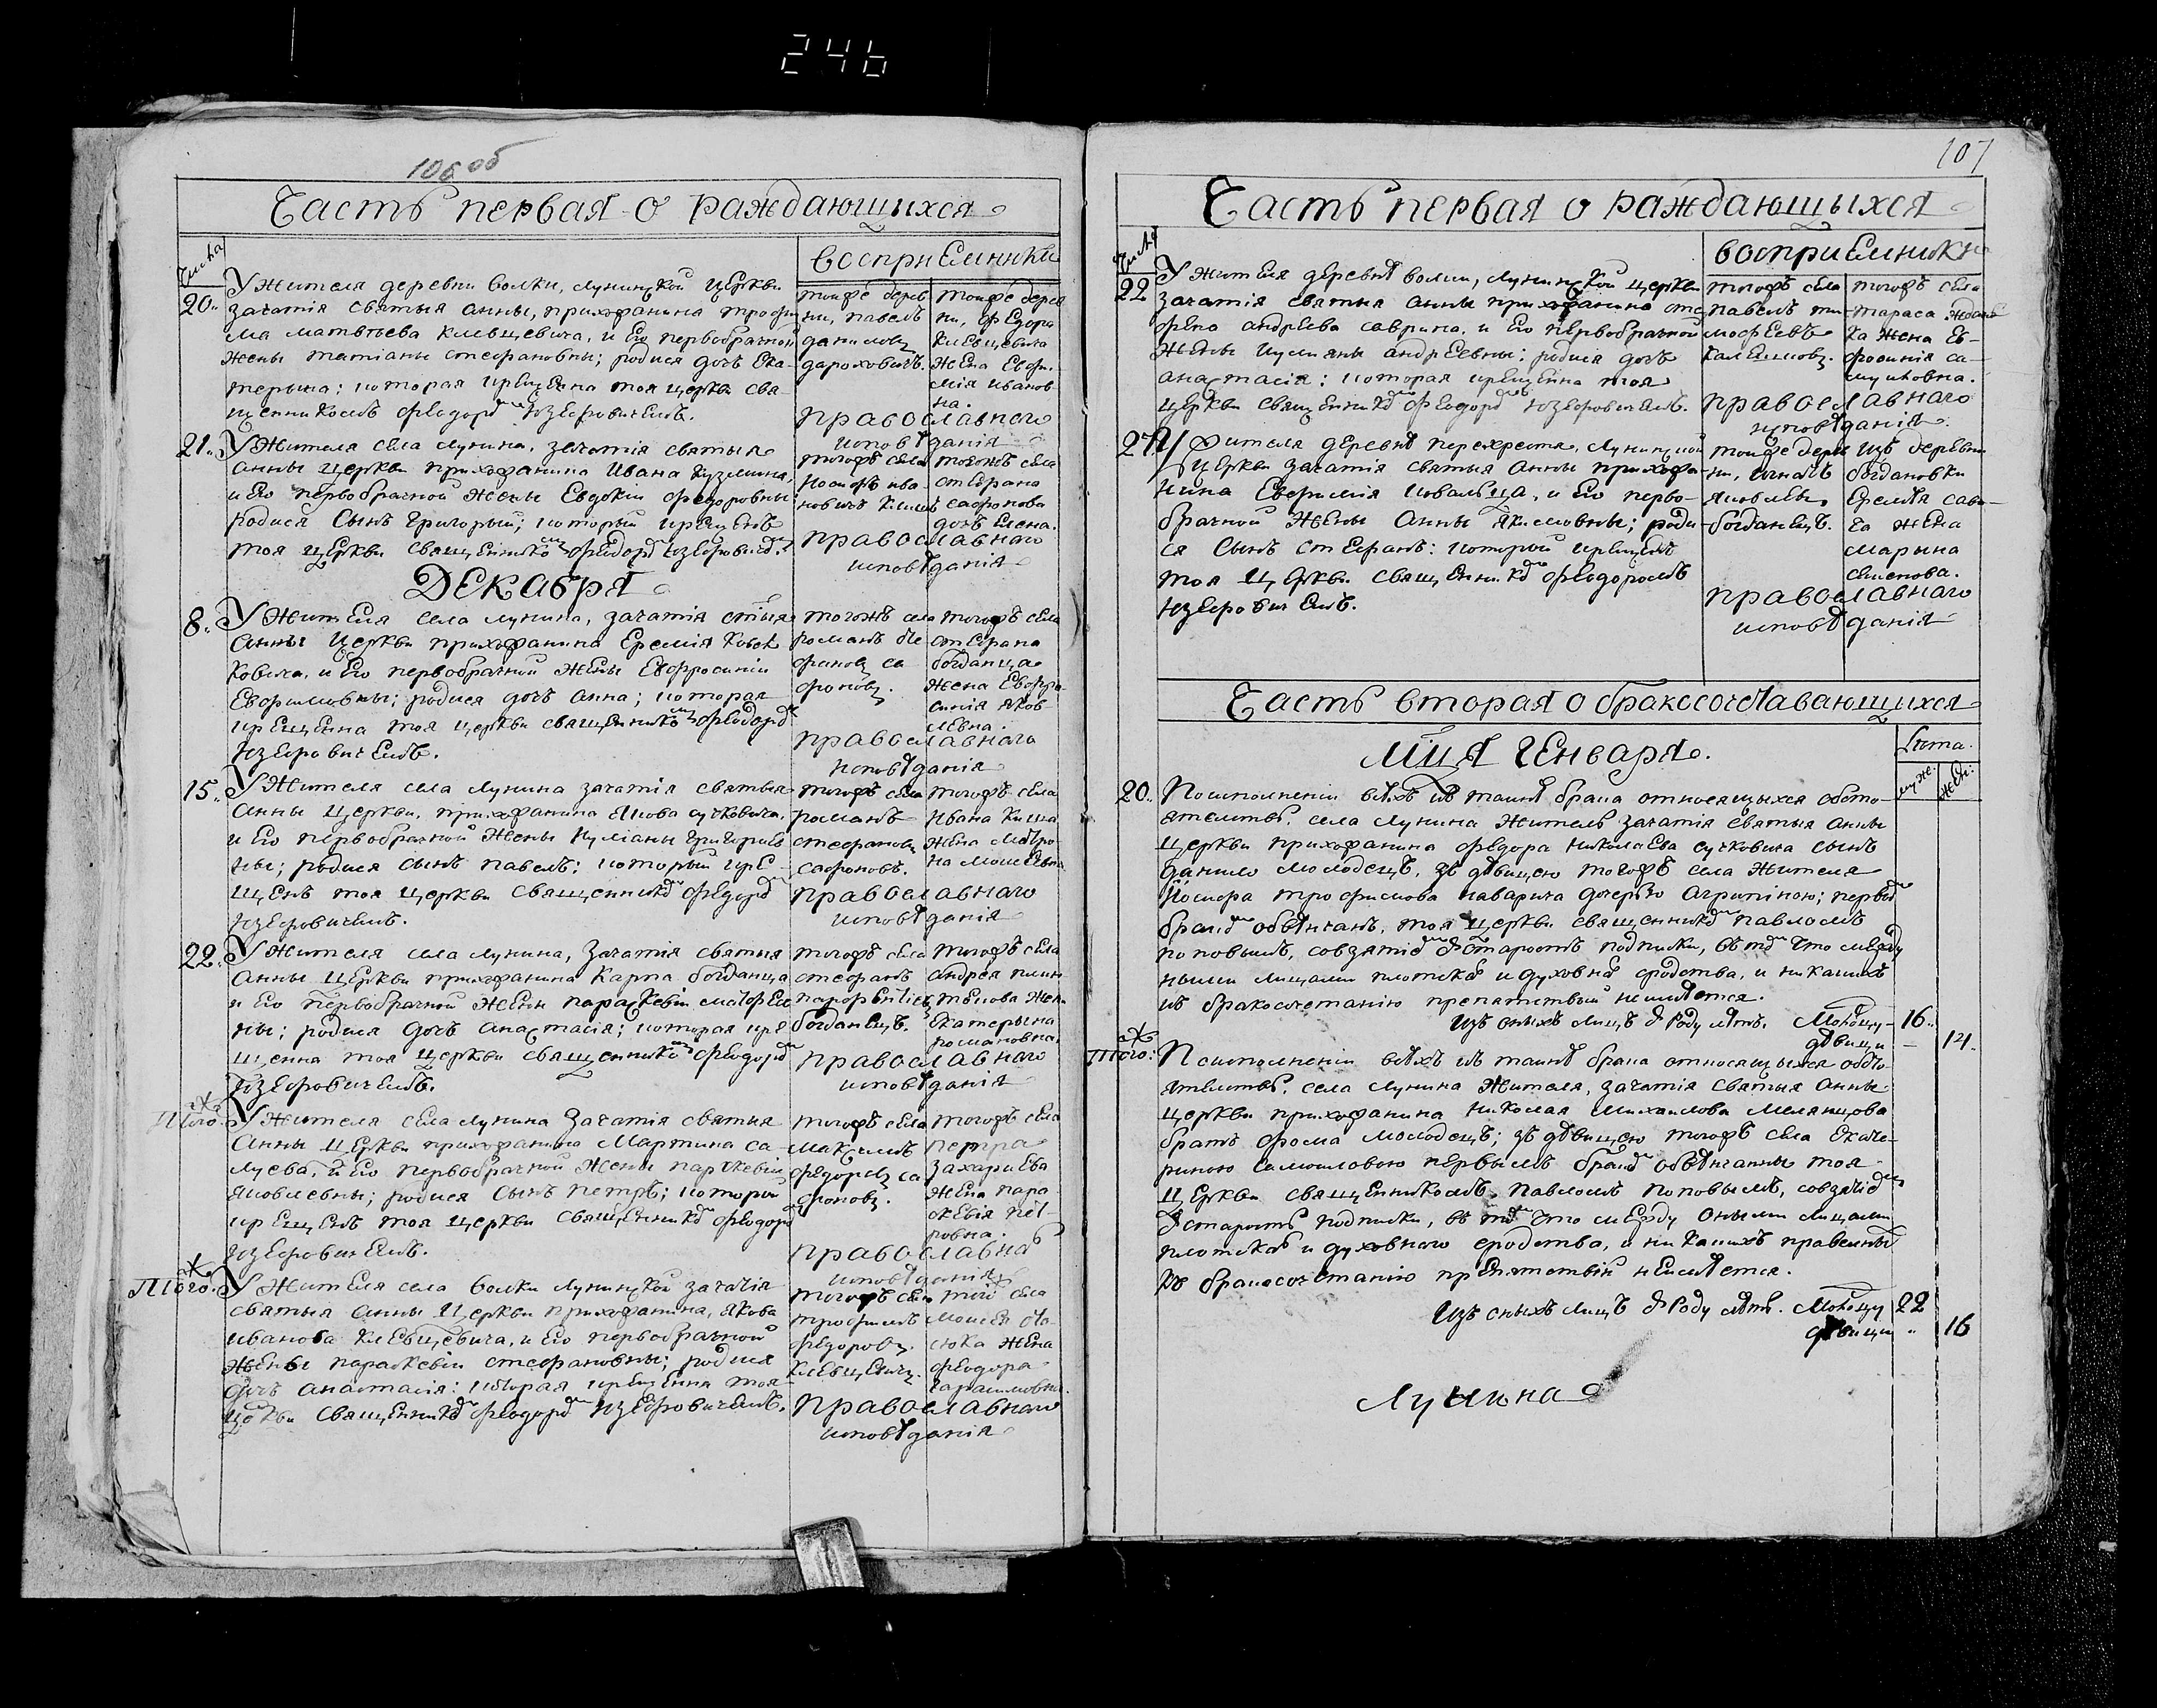 246
106 об
Часть первая о раждающихся
Числа
восприемники
20. У жителя деревни волки, лунинской церкви
зачатія святыя анны, прихожанина трофи
ма матвѣева клевцевича, и его первобрачной
жены татіаны стефановны; родися дочь ека-
терына; которая крещенна тоя церкви свя-
щенникомъ феодоромъ юзефовичемъ.
тойже дерев
ни, павелъ
данилов
дароховичъ.
тойже дерев
ни, федора
клевцевича
жена евфи-
мія иванов-
на.
православного
исповѣданія
21. У жителя села лунина, зачатія святыя
анны церкви прихожанина ивана кузмина,
и его первобрачной жены евдокіи федоровны
родися сынъ григорый; который крещенъ
тоя церкви священникомъ феодоромъ юзефовичемъ.
тогожъ села
иосифъ ива
новичъ
тогожъ села
стефана
сафонова
дочь елена.
православнаго
исповѣданія
Декабря
8. У жителя села лунина, зачатія стыя
анны церкви прихожанина еремія
ковича, и его первобрачной жены евфросиніи
евфимовны; родися дочь анна; которая
крещенна тоя церкви священникомъ феодоромъ
юзефовичемъ.
тогожъ села
романъ сте
фановъ са
фоновъ.
тогожъ села
стефана
богданца
жена евфро-
синія яков-
левна.
православнаго
исповѣданія
15. У жителя села лунина зачатія святыя
анны церкви, прихожанина якова сучковича,
и его первобрачной жены иуліаны григорьев
ны; родися сынъ павелъ; который кре-
щенъ тоя церкви священникомъ феодоромъ
юзефовичемъ.
тогожъ села
романъ
стефановъ
сафоновъ.
тогожъ села
ивана
жена матро
на моисеевна
православнаго
исповѣданія
22. У жителя села лунина, зачатія святыя
анны церкви прихожанина карпа богданца
и его первобрачной жены параскевіи матфеев
ны; родися дочь анастасія; которая кре
щенна тоя церкви священникомъ феодоромъ
юзефовичемъ.
тогожъ села
стефанъ
парфентіев
богданецъ.
тогожъ села
андрея
жен
екатерына
романовна.
православнаго
исповѣданія
Того. У жителя села лунина зачатія святыя
анны церкви прихожанина мартина са-
луева, и его первобрачной жены параскевіи
яковлевны; родися сынъ петръ; который
крещенъ тоя церкви священникомъ феодоромъ
юзефовичемъ.
тогожъ села
максимъ
федоровъ са
фоновъ.
тогожъ села
петра
захариева
жена пара
скевія пет-
ровна.
православнаго
исповѣданія
Того. У жителя села волки лунинской зачатія
святыя анны церкви прихожанина, якова
иванова клевцевича, и его первобрачной
жены параскевіи стефановны; родися
дочь анастасія: которая крещенна тоя
церкви священникомъ феодоромъ юзефовичемъ.
тогожъ села
трофимъ
федоровъ
клевцевичъ.
той села
моисея
жена
феодора
гарасимовна.
православнаго
исповѣданія
107
Часть первая о раждающыхся
Числа
восприемники
22 У жителя деревнѣ волки, лунинской церкви
зачатія святыя анны прихожанина сте
фена андреева саврина, и его первобрачной
жены иулияны андреевны; родися дочь
анастасія: которая крещенна тоя
церкви священникомъ феодоромъ юзефовичемъ.
тогожъ села
павелъ ти-
мофеевъ
тогожъ села
тараса
ка жена ев-
фросинія са-
муиловна.
православнаго
исповѣданія.
27. У жителя деревнѣ перехрестя, лунинской
церкви зачатія святыя анны прихожа-
нина евфимія ковальца, и его перво-
брачной жены анны якимовны; роди
ся сынъ стефанъ: который крещенъ
тоя церкви священникомъ феодоромъ
юзефовичемъ.
тойже дерев
ни, игнатъ
яковлевъ
богданецъ.
изъ деревни
богдановки
еремѣя сав-
ва жена
марына
семенова.
православнаго
исповѣданія
Часть вторая о бракосочетавающихся
Мца Генваря.
Лѣта.
муже. женс:
20. По исполненіи всѣхъ къ таинѣ брака относящыхся обсто-
ятелствъ. села лунина житель зачатія святыя анны
церкви прихожанина федора николаева сучковича сынъ
данило молодецъ, зъ дѣвицею тогожъ села жителя
иосифа трофимова наварича дочерью агрипіною; первымъ
бракомъ обвѣнчанъ, тоя церкви священникомъ павломъ
поповымъ, совзятіемъ старостъ подписки, въ томъ что между
ними лицами плотскаго и духовнаго сродства, и никакихъ
къ бракосочетанію препятствій неимѣется.
Изъ оныхъ лицъ от Роду лѣтъ. Молодцу 16.
дѣвицы — 14.
Того: По исполненіи всѣхъ къ таинѣ брака относящыхся обсто-
ятелствъ. села лунина жителя, зачатія святыя анны
церкви прихожанина николая михаилова мелянцова
братъ фома молодецъ; зъ дѣвицею тогожъ села екате-
риною самоиловою первымъ бракомъ обвѣнчанны тоя
церкви священникомъ павломъ поповымъ, совзятіемъ
старостъ подписки, въ томъ что между оными лицами
плотскаго и духовнаго сродства, и никакихъ правелныхъ
къ бракосочетанію препятствій неимѣется.
Изъ оныхъ лицъ от Роду лѣтъ. Молодцу 22
дѣвицы " 16
Лунина